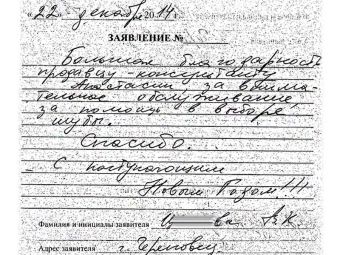 «22» декабря 2014 г.
ЗАЯВЛЕНИЕ №
Большая благодарность
продавцу-консультанту
Анастасии за внима-
тельное обслуживание,
за помощь в выборе
шубы.
Спасибо.
С наступающим
Новым Годом!!!
Фамилия и инициалы заявителя ва В.К.
Адрес заявителя г. Череповец